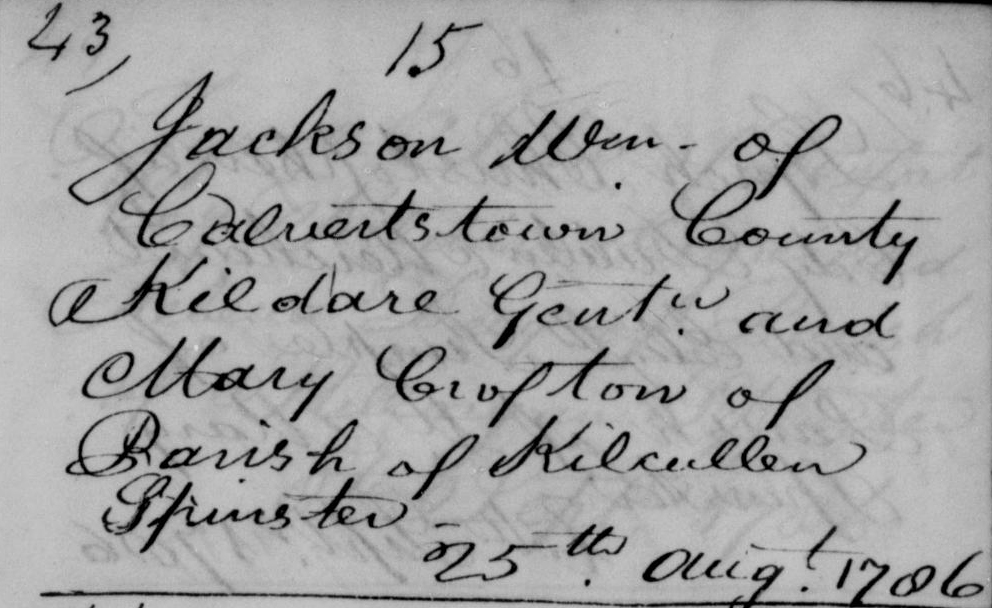 43, 15
Jackson Wm. of
Calvertstown County
Kildare Gent.n and
Mary Crofton of
Parish of Kilcullen
Spinster
25th. Augt. 1786